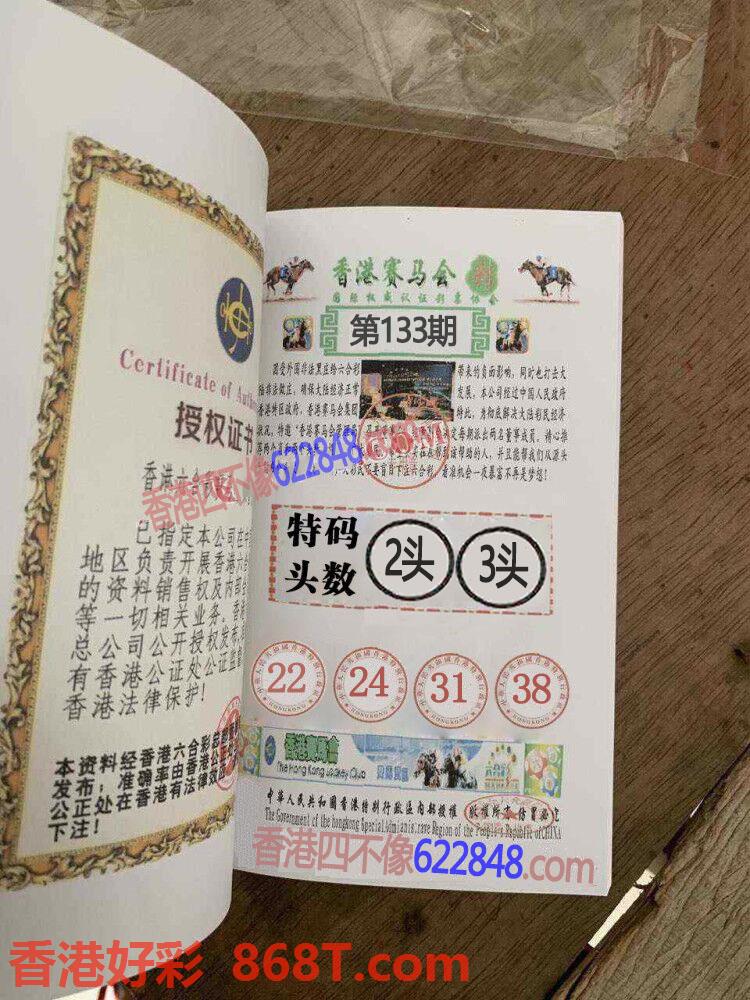 Certificate of
授权证书
香港六合
已指定本公司在中
地区负责开展香港六合
的资料销售权及内部
等一切相关业务。香
总公司公开授权发布，
有香港公证处公证监督
香港法律保护！
本资料经香港六合彩
发布；准确率由香港
公正处在香港有法律效
下注！
香港赛马会
彩
国际权威认证彩票协会
第133期
国受外国非法黑庄给六合彩
带来的负面影响，同时也打击大
陆非法做庄，确保大陆经济正常
发展。本公司经过中国人民政府
香港特区政府，香港赛马会集团
特此，为彻底解决大陆彩民经济
状况，特邀“香港赛马会
决定每期派出两名董事成员，精心推
该帮助的人，并且能帮我们从源头
彩民不要盲目下注六合彩，看准机会一夜暴富不再是梦想！
香港四不像622848.com
特码
头数
2头
3头
22
24
31
38
HONGKONG
HONGKONG
HONGKONG
HONGKONG
香港賽馬會
The Hong Kong Jockey Club
中華人民共和國香港特别行政區内部授權
版權所有 仿冒必究
The Government of the hongkong Special Admianis.trave Region of the People's Republic of CHINA
香港四不像622848.com
香港好彩 868T.com